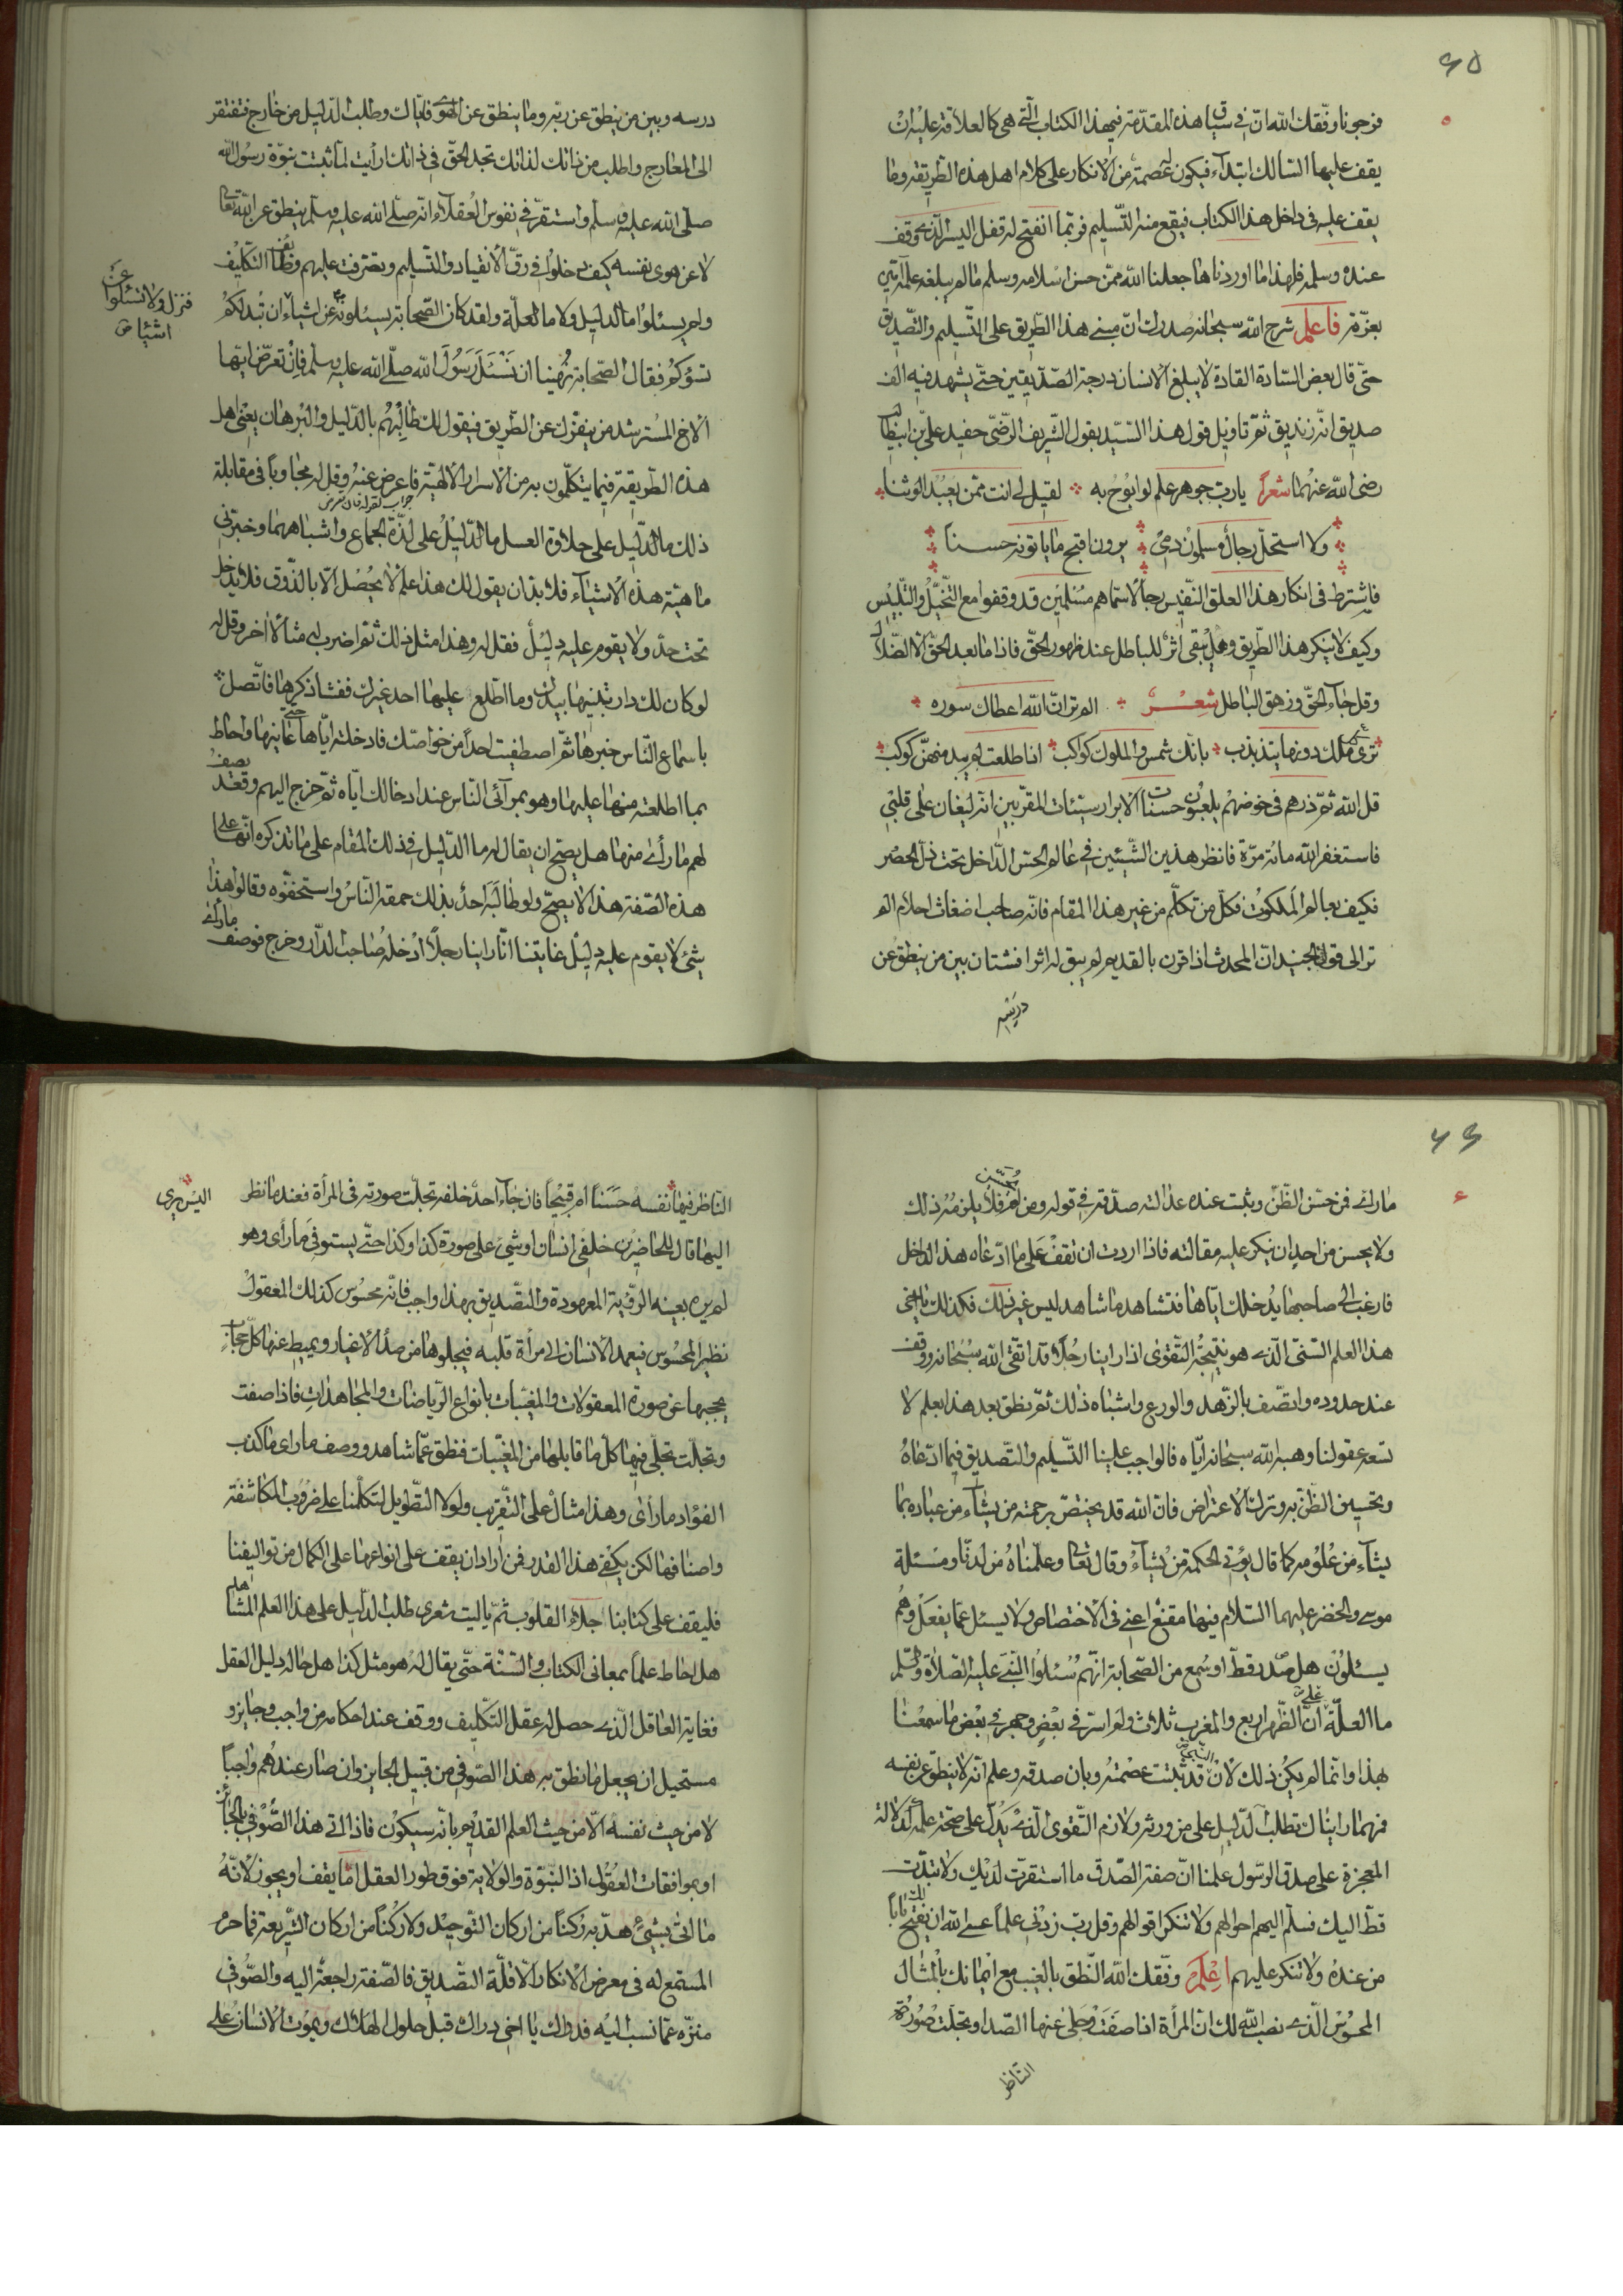 ٦٥
فرجونا وفّقك الله انّ في سياق هذه المقدّمة فيهذا الكتاب الّتي هي كالعلاقة عليه ان
يقف عليها السّالك ابتدآء فيكون له عصمة من الانكار على كلام اهل هذه الطّريقة وما
يقف عليه في داخل هذا الكتاب فيقع منه التّسليم فربّما انفتح له قفل اليسر الّذي وقف
عنده وسلمه فلهذا ما اوردناها جعلنا الله ممّن حسن اسلامه وسلم ما لم يبلغه علمه آمين
بعزّته فاعلم شرح الله سبحانه صدرك انّ مبنى هذا الطّريق على التّسليم والتّصديق
حتّى قال بعض السّادة القادة لا يبلغ الانسان درجة الصّدّيقين حتّى يشهد فيه الف
صديق انّه زنديق ثمّ تاويل قول هذا السّيّد بقول الشّريف الرّضّى حفيد علىّ بن ابيطالب
رضى الله عنهما شعراً ياربّ جوهر علم لو ابوُح به لقيل لي انت ممّن يعبُد الوثنا
ولا استحلّ رجالٌ مسلمون دمي يرون اقبح ما ياتونه حسناً
فاشترط في انكار هذا العلق النّفيس رجالاً سمّاهم مُسْلمين قد وقفوا مع التّخيّل والتّلبيس
وكيف لا ينكر هذا الطّريق وهل يبقى اثرٌ للباطل عند ظهور الحقّ فماذا بعد الحقّ الّا الضّلال
وقل جآء الحقّ وزهق الباطل شعْر الم تر انّ الله اعطاك سوره
ترى كلّ ملك دونها يتذبذب بانّك شمس والملوك كواكب اذا طلعت لم يبد منهنّ كوكب
قل الله ثمّ ذرهم في خوضهم يلعبون حسنات الابرار سيّئات المقرّبين انّه ليغان على قلبي
فاستغفر الله مائة مرّة فانظر هذين الشّيئين في عالم الحسّ الدّاخل تحت ذلّ الحصْر
فكيف بعالم الملكوت فكلّ من تكلّم من غير هذا المقام فانّه صاحب اضغاث احلام الم
تر الى قول الجنيد انّ المحدث اذا قرن بالقديم لم يبق له اثر افشتان بين من ينطق عن
درسه
درسه وبين من ينطق عن ربّه وما ينطق عن الهوى فايّاك وطلب الدّليل من خارج فتفتقر
الى المعارج واطلب من ذاتك لذاتك تجد الحقّ في ذاتك ارأيت لمّا ثبتت نبوّة رسول الله
صلّى الله عليه وسلم واستقرّ في نفوس العقلآء انّه صلّى الله عليه وسلّم ينطق عن الله تعالى
لا عن هوى نفسه كيف دخلوا في رقّ الانقياد والتّسليم وتصرّفت عليهم وظائف التّكليف
ولم يسئلوا ما الدّليل ولا ما العلّة ولقد كان الصّحابة يسئلونه عن اشيآء ان تُبد لكم
فنزل ولا تسئلوا عن
اشياء ص
تسؤكم فقال الصّحابة نُهينا ان نَسْئَل رَسُولَ الله صلّى الله عليه وسلم فان تعرّض ايّها
الاخ المُسترشد من ينفّرك عن الطّريق فيقول لك طالبهُم بالدّليل والبُرهان يعْنى اهل
هذه الطّريقة فيما يتكلّمون به من الاسرار الالهيّة فاعرض عنهُ وقل له مجاوباً في مقابلة
ذلك ما الدّليل على حلاوة العسل ما الدّليل على لذّة الجماع واشباههما وخبّرني
ماهيّة هذه الاشيآء فلا بدّ ان يقول لك هذا علمٌ لا يحُصل الّا بالذّوق فلا يدخل
تحت حدّ ولا يقوم عليه دليلٌ فقل له وهذا مثل ذلك ثمّ اضرب له مثالاً اخر وقل له
لو كان لك دار بنيتها بيدك وما اطّلع عليها احد غيرك ففشا ذكرها فاتّصل
باسماع النّاس خبرها ثمّ اصطفيت احداً من خواصّك فادخلته ايّاها حتّى عاينها واحاط
بما اطلعته منها عليها وهو بمرآئى النّاس عند ادخالك ايّاه ثمّ خرج اليهم وقعد يصف
لهم ما رأى منها هل يصحّ ان يقال له ما الدّليل في ذلك المقام على ما تذكره انّها على
هذه الصّفة هذا لا يصحّ ولو طالَبَه احدٌ بذلك حمقه النّاسُ واستحقّوه وقالوا هذا
شئ لا يقوم عليه دليلٌ غايتنا انّا راينا رجلاً ادْخلهُ صاحب الدّار وخرج فوصف ما رأى
٦٦
ما رأى فمن حسّن الظّنّ وثبت عنده عدالته صدّقه في قوله ومن لم يُحسّن فلا يلزمهُ ذلك
ولا يحسن من احدٍ ان ينكر عليه مقالته فاذا اردت ان تقف على ما ادّعاه هذا الدّاخل
فارغب الى صاحبها يُدخلك ايّاها فتشاهد ما شاهد ليس غير ذلك فكذلك يا اخى
هذا العلم السّنى الّذي هو نتيجةُ التّقوى اذا راينا رجُلاً قد اتّقى الله سُبحانه ووقف
عند حدوده واتّصف بالزّهد والورع واشباه ذلك ثمّ نطق بعد هذا بعلم لا
تسعه عقولنا وهبه الله سبحانه ايّاه فالواجب علينا التّسليم والتّصديق فيما ادّعاهُ
وتحسين الظّنّ به وترك الاعتراض فانّ الله قد يختصّ برحمته من يشآء من عباده بما
يشآء من عُلوُمه كما قال يؤتى الحكمة من يشآءُ وقال تعالى وعلّمناهُ من لدنّا ومَسْئلة
موسى والخضر عليهما السّلام فيهما مقنعٌ اعني في الاختصاص ولا يسئل عمّا يفعلُ وهُم
يسئلوُن هل صدر قطّ او سُمع من الصّحابة انّهم سُئلوُا النّبىّ عليه الصّلاة والسّلم
ما العلّة على انّ الظّهر اربع والمغرب ثلاث ولم اسرّ في بعْضٍ وجهر في بعْض ما سَمعْنا
بهذا وانّما لم يكن ذلك لانّ النّبىّ قد ثبتت عصْمتهُ وبان صدقه وعلم انّه لا ينطق عن نفسه
فمهما راينا لا تطلب الدّليل على من ورثه ولازم التّقوى الّذى يَدُلّ على صحّة علمه دلالة
المعجزة على صدق الرّسول علمنا انّ صفة الصّدق ما استقرّت لديْك ولا تبدّت
قطّ اليك فسلّم اليهم احوالهم ولا تنكر اقوالهم وقل ربّ زدْني علماً عسى الله ان يفتح لك باباً
من عنده ولا تنكر عليهم اعْلَمْ وفّقك الله النّطق بالغيب مع ايمانك بالمثال
المحسُوْس الّذي نصب الله لك انّ المرأة اذا صَفَت وجلى عنها الصّدا وتجلّت صُورَة
النّاظر
النّاظر فيها نفسه حَسَناً ام قبيْحاً فان جآء احدٌ خلفه تجلّت صورته في المرأة فعند ما نظر
اليس يرى
اليها قال للحاضرين خلفى انسان او شئ على صورة كذا وكذا حتّى يستوفى ما رأى وهو
لم يره بعينه الرّؤية المعهودة والتّصديق بهذا واجب فانّه محسُوس كذلك المعقولُ
نظير المحسُوس فيعمد الانسان الى مرأة قلبه فيجلوها من صدأ الاغيار ويميط عنها كلّ حجاب
يحجبها عن صورة المعقولات والمغيّبات بانواع الرّياضات والمجاهدات فاذا صفت
وتجلّت تجلّى فيها كلّ ما قابلها من المغيّبات فنطق عمّا شاهد ووصف ما راى ما كذب
الفؤاد ما رأى وهذا مثالٌ على التّقريب ولولا التّطويل لتكلّمنا على ضُروب المكاشفة
واصنافها لكن يكفى هذا القدر فمن اراد ان يقف على انواعها على الكمال من تواليفنا
فليقف على كتابنا جلاء القلوب ثمّ ياليت شعرى طلب الدّليل على هذا العلم المشاهد
هل احاط علماً بمعانى الكتاب والسّنّة حتّى يقال له هو مثل كذا هل حاله دليل العقل
فغاية العاقل الّذي حصل له عقل التّكليف ووقف عند احكامه من واجب وجايز و
مستحيل ان يجعل ما نطق به هذا الصّوفى من قبيل الجايز وان صار عندهُم واجباً
لا من حيث نفسه الّا من حيث العلم القديم بانّه سيكوُن فاذا اتى هذا الصُّوْفى بالجائز
او بموافقات العُقُول اذ النّبوّة والولاية فوق طور العقل امّا يقف او يجوز لانّهُ
ما اتى بشئ هدّ به رُكناً من اركان التّوحيْد ولا ركُناً من اركان الشّريعة فما حرم
المستمع له في معرض الانكار الّا قلّة التّصديق فالصّفة راجعة اليه والصّوُفى
منزّه عمّا نسب اليْه فدراك يا اخى دراك قبل حلول الهلاك ويموُت الانسان على